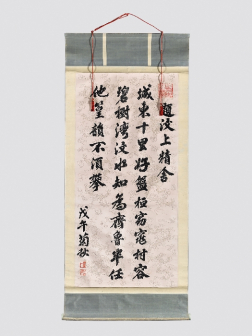 題汶上精舍
城東十里好盤桓窈窕村容
碧樹灣汶水知為齊魯半任
他笙韻不須攀
戊午菊秋